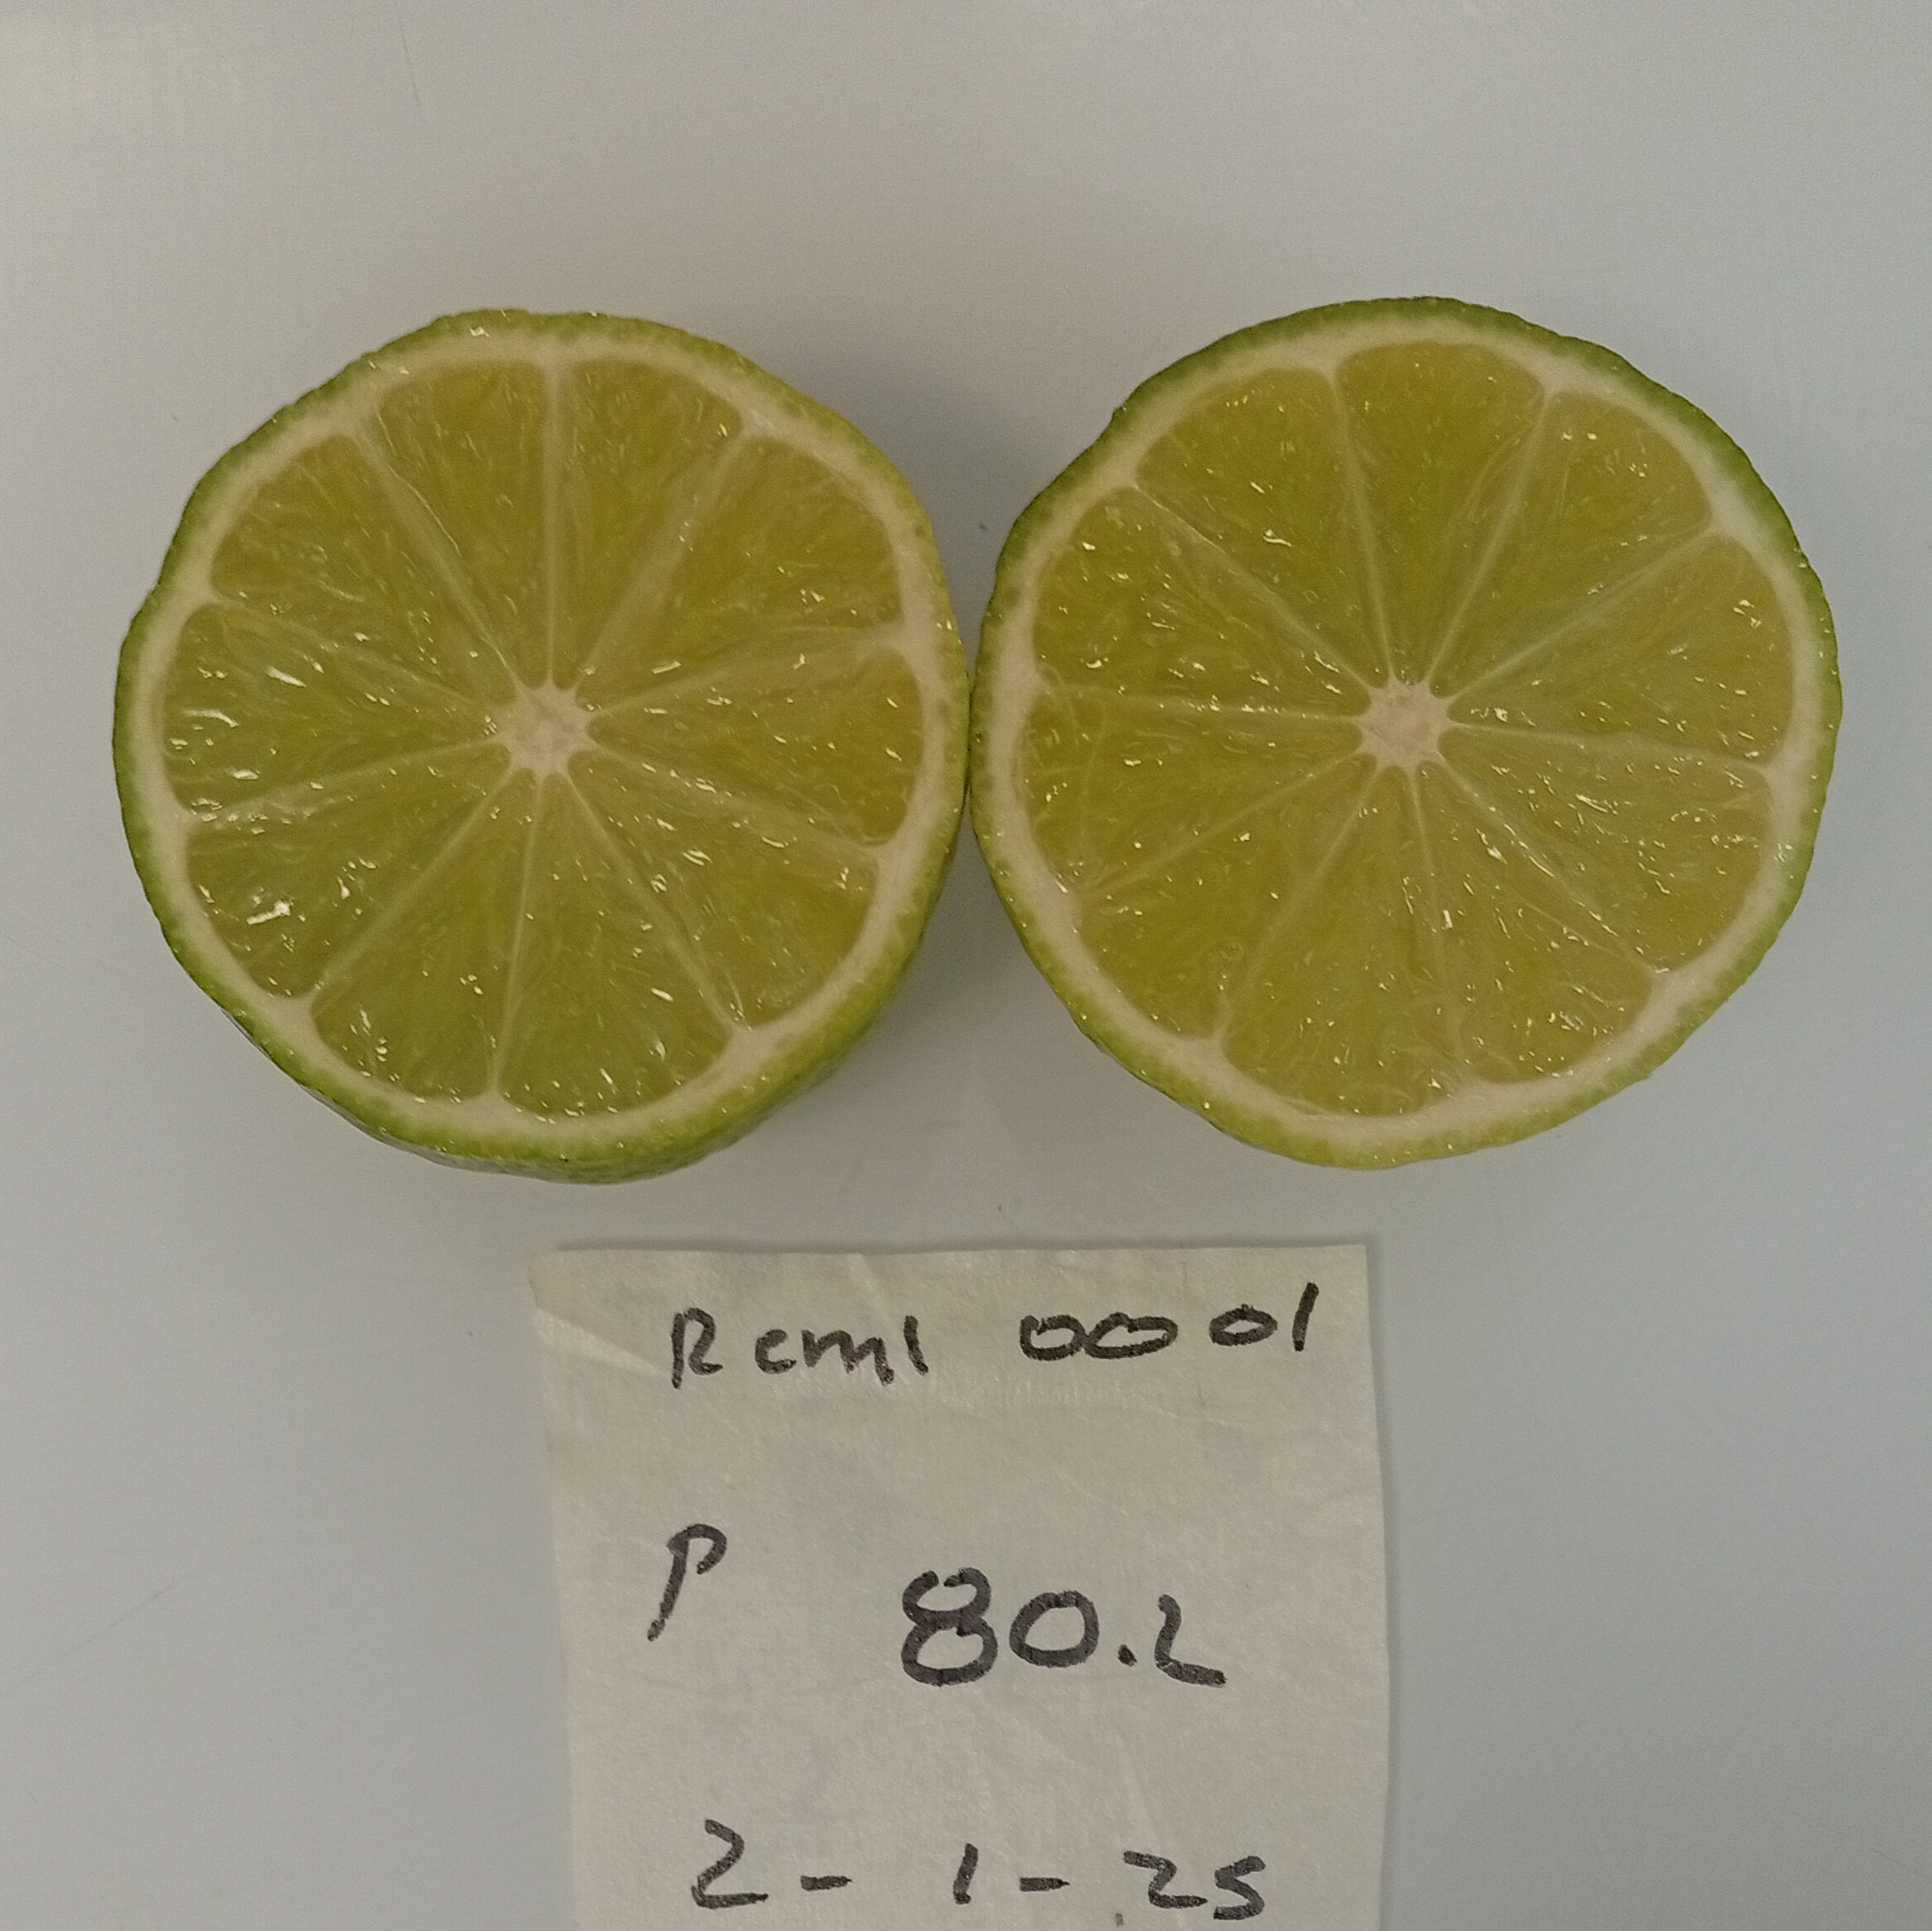 Rcml 0001
P 80.2
2-1-25